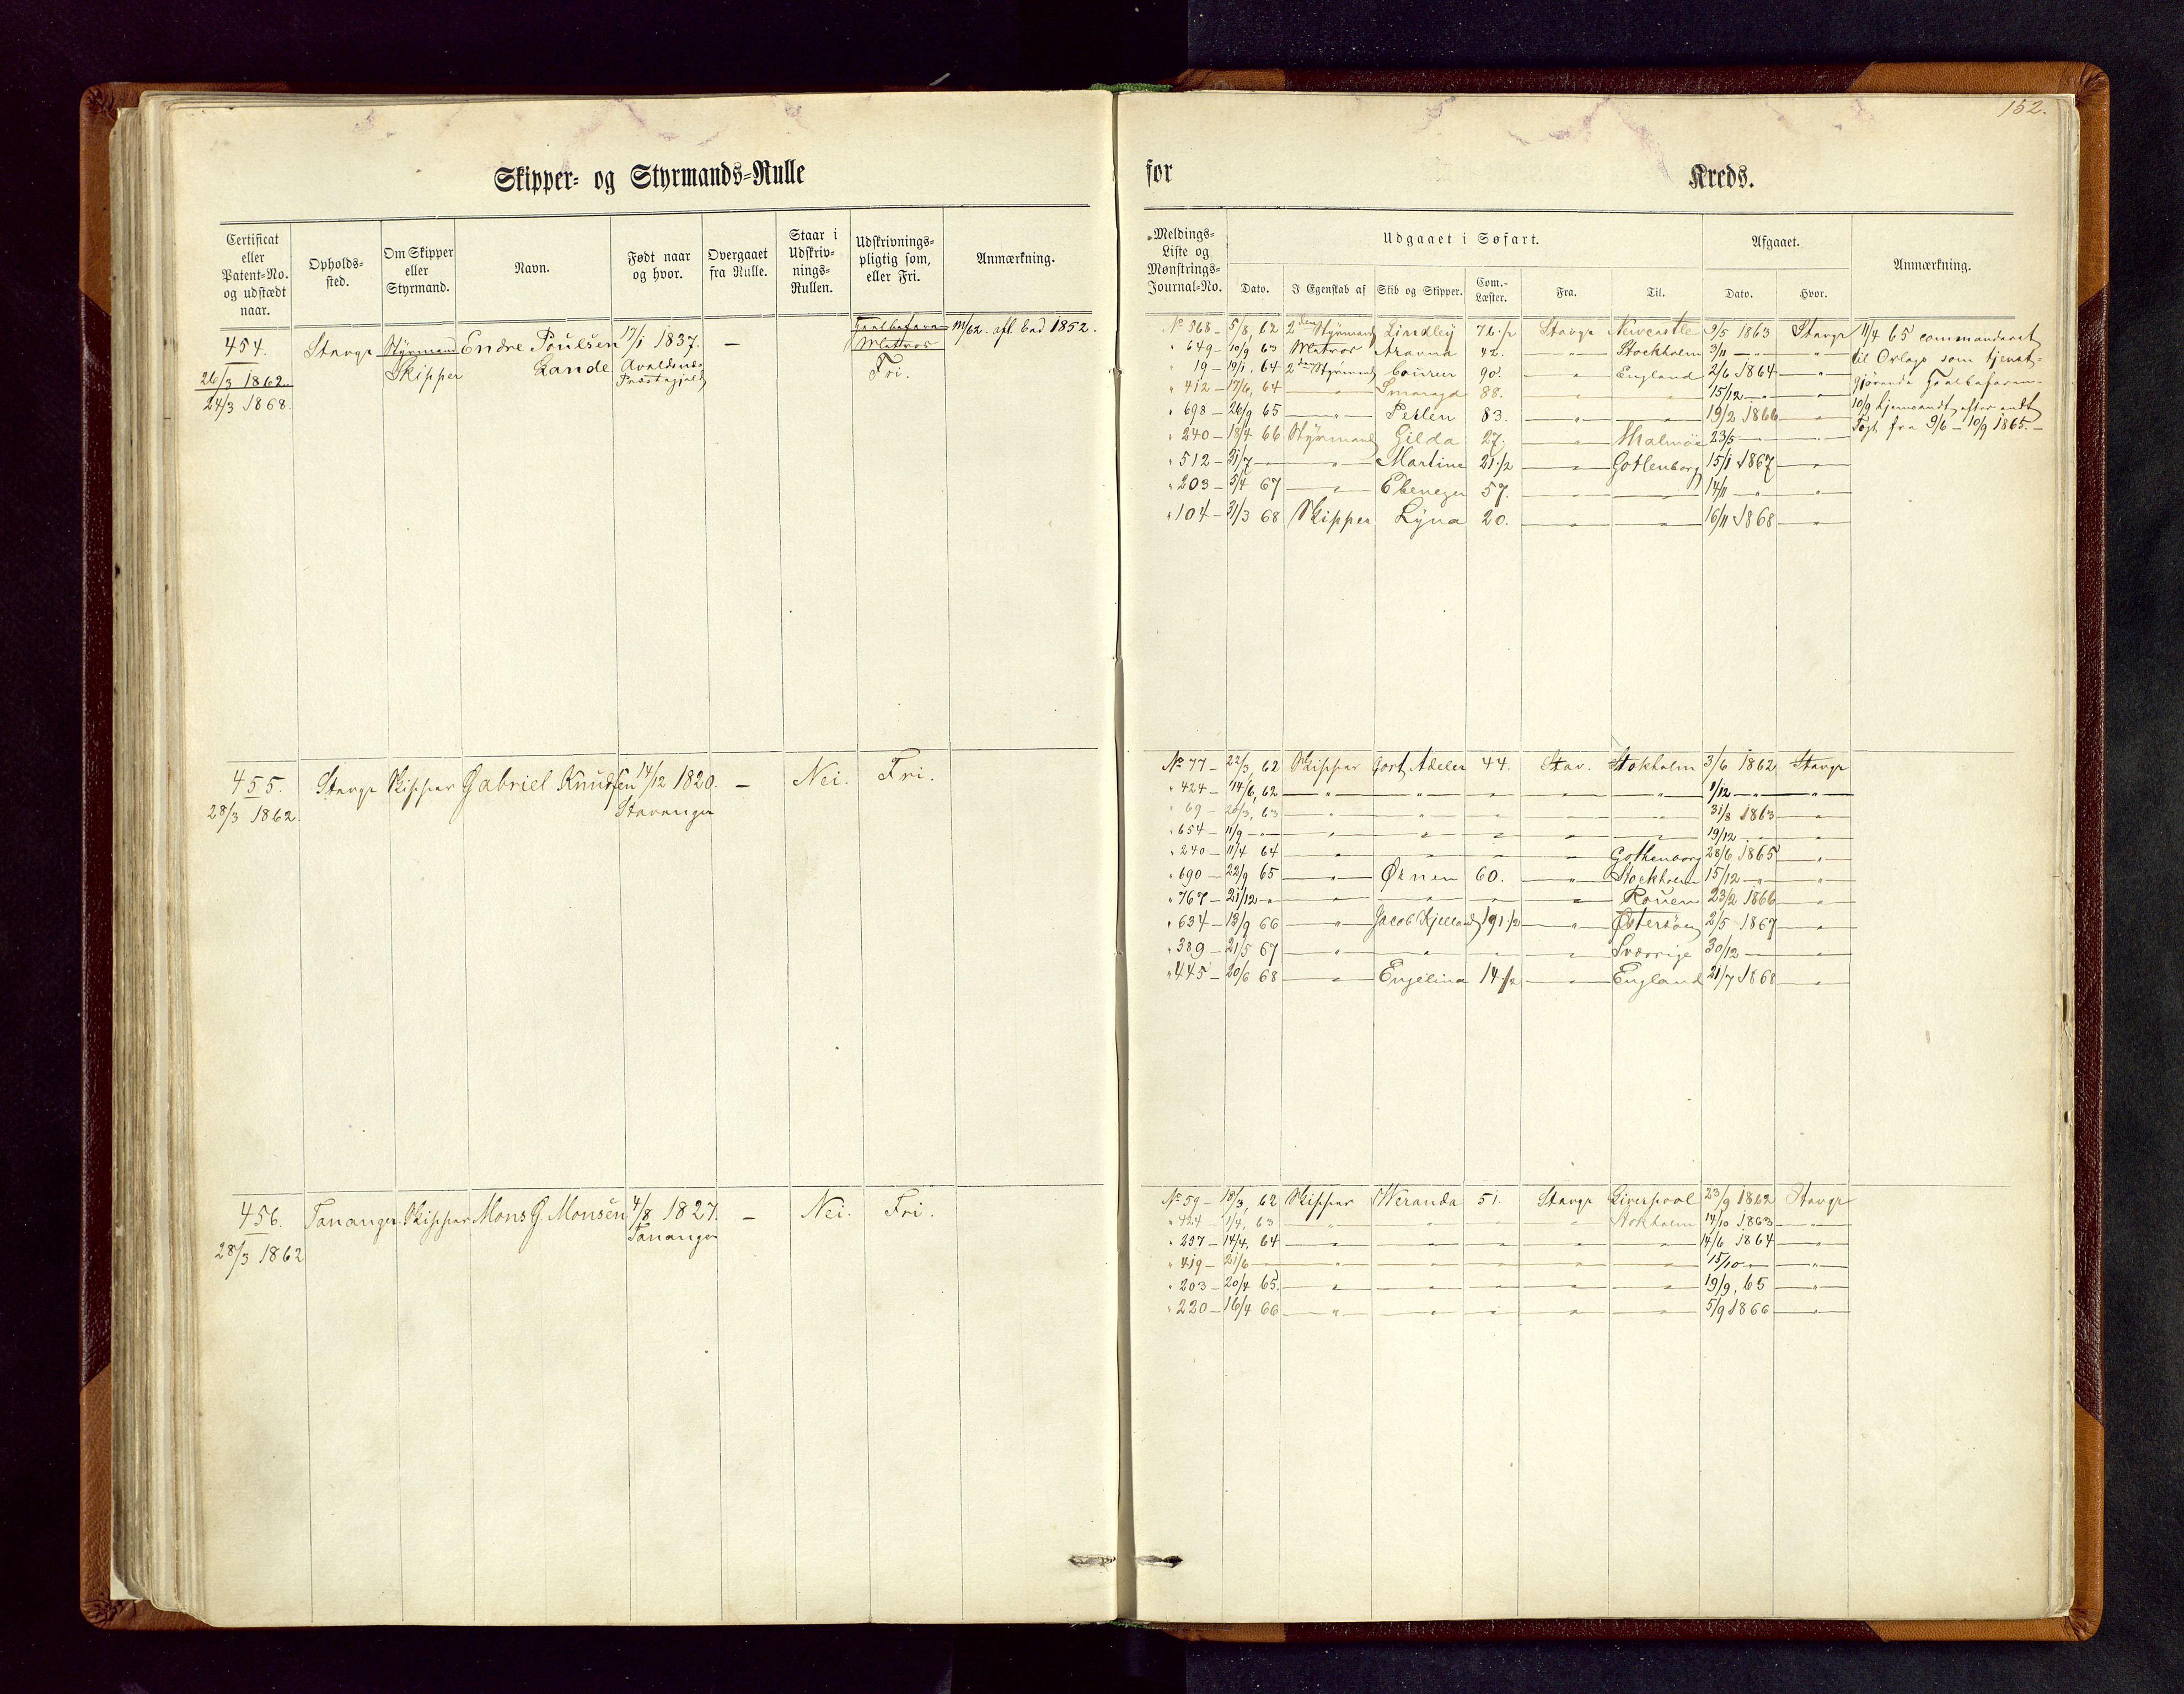 152.
Skipper- og Styrmands-Rulle
for Kreds.
Certificat eller Patent-No. og udstædt naar.
Opholds-sted.
Om Skipper eller Styrmand.
Navn.
Født naar og hvor.
Overgaaet fra Rulle.
Staar i Udskriv-nings-Rullen.
Udskrivnings-pligtig som, eller Fri.
Anmærkning.
Meldings-Liste og Mønstrings-Journal-No.
Udgaaet i Søfart.
Dato. I Egenskab af Skib og Skipper. Com.-Læster. Fra. Til.
Afgaaet.
Dato. Hvor.
Anmærkning.
454. Stavgr Styrmand Endre Poulsen 17/1 1837. — Matros 11/62. afl. Ed 1852.
26/3 1862. Skipper Lande Avaldsnes Præstegjeld Fri.
24/3 1868.
No 568 — 5/8, 62 2den Styrmand Lindley 76 1/2 Stavgr Newcastle 9/5 1863 Stavgr
" 649 — 10/9 63 Matros 42. — " — Stockholm 3/11 — " — "
" 19 — 19/1, 64 2den Styrmand Courier 90. " England 2/6 1864 — "
" 412 — 17/6, 64 — " — Smaragd 88. " " 15/12 — " — "
" 698 — 26/9 65 — " — Perlen 83. " " 19/2 1866 "
" 240 — 18/4 66 Styrmand Gilda 27. — " — Malmöe 23/5 — " — "
" 512 — 31/7 — " — Martine 21 1/2 — " — Gothenborg 15/1 1867 — "
" 203 — 5/4 67 — " — Ebenezer 57. — " — " 14/11 — " — "
" 104 — 31/3 68 Skipper Lyna 20. — " — " 16/11 1868 — "
11/4 65 commanderet
til Orlogs som tjenst-
gjørende
10/9 hjemsendt efter endt
Togt fra 9/6 — 10/9 1865. —
455. Stavgr Skipper Gabriel Knudsen 14/12 1820. — Nei. Fri.
28/3 1862. Stavanger
No 77 — 22/3, 62 Skipper Cort Adeler 44. Stav. Stokholm 3/6 1862 Stavgr
" 424 — 14/6, 62 — " — " — " — " — " 1/12 — " — "
" 69 — 26/3, 63 — " — " — " — " — " 31/8 1863 — "
" 654 — 11/9 — " — " — " — " — " — " 19/12 — " — "
" 240 — 11/4 64 — " — " — " — " — Gothenborg 28/6 1865 — "
" 690 — 22/9 65 — " — Ørnen 60. — " — Stockholm 15/12 — " — "
" 767 — 21/12 — " — " — " — " — " — Rouen 23/2 1866 — "
" 634 — 13/9 66 — " — Jacob Kjelland 191 1/2 — " — Østersöen 2/5 1867 — "
" 389 — 21/5 67 — " — " — " — " — Sværrige 30/12 — " — "
" 445 — 20/6 68 — " — Engelina 14 1/2 — " — England 21/7 1868 — "
456. Tananger Skipper Mons G. Monsen 4/8 1827. — Nei. Fri.
28/3 1862 Tananger
No 59 — 18/3, 62 Skipper Weranda 51. Stavgr Liverpool 23/9 1862 Stavgr
" 424 — 1/4, 63 — " — " — " — " — Stokholm 14/10 1863 — "
" 237 — 14/4, 64 — " — " — " — " — " 14/6 1864 — "
" 419 — 21/6 — " — " — " — " — " — " 15/10 — " — "
" 203 — 20/4 65. — " — " — " — " — " 19/9, 65 — "
" 220 — 16/4 66 — " — " — " — " — " 5/9 1866 — "